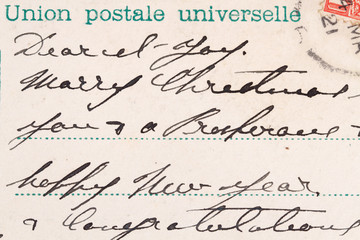 Union postale universelle
Dearest Joy.
Marry Christmas
you & a Prosperous &
happy New year.
& Congratulations
21